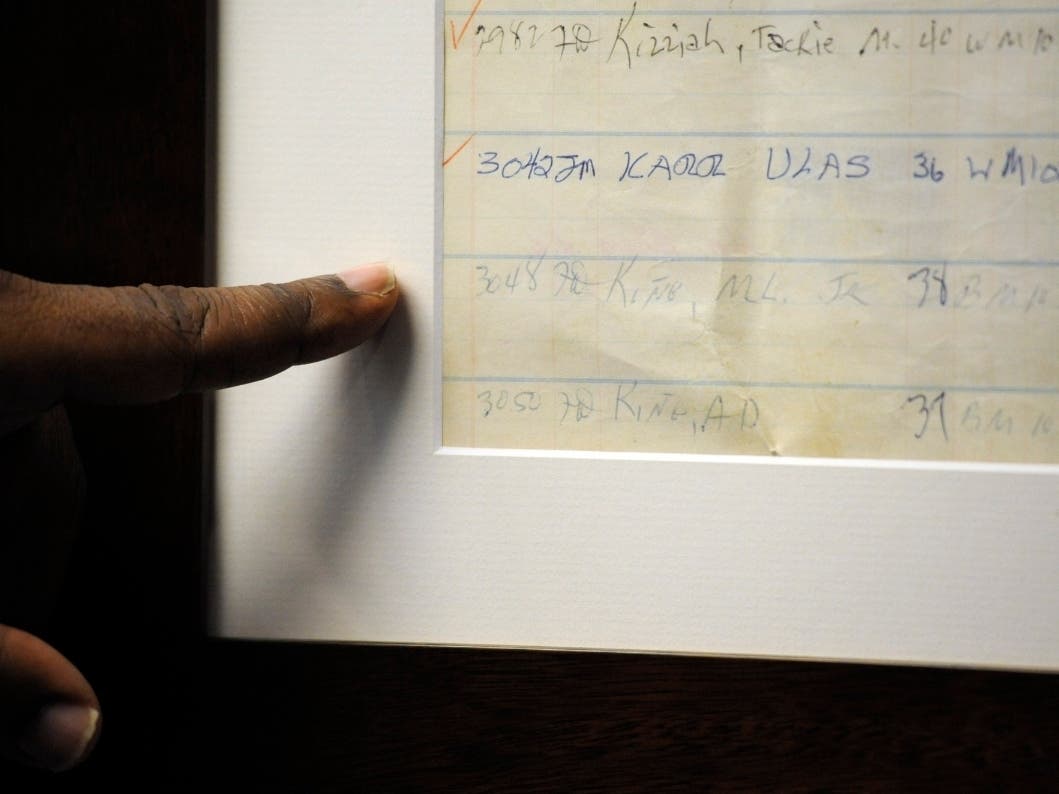 2982 Kizziah, Jackie M. 40 W M 10
3042 JM KAROL ULAS 36 W M 10
3048 King, M.L. JR 38 B M 10
3050 King, A D 37 B M 10